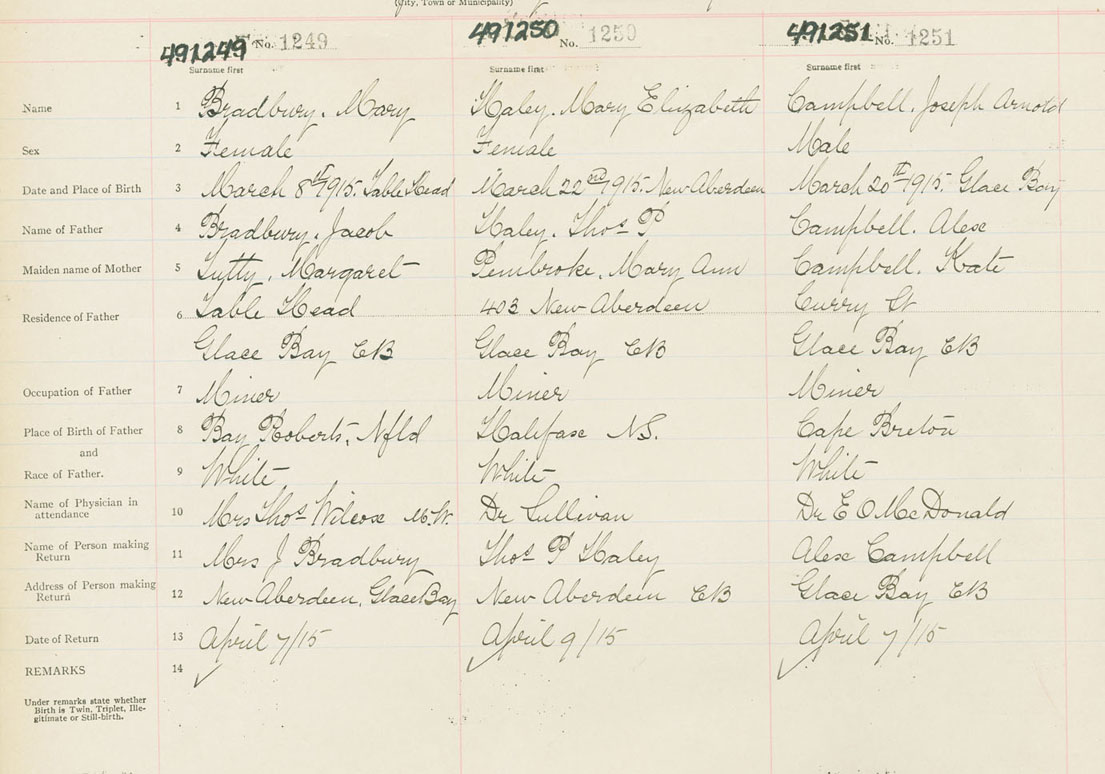 (City, Town or Municipality)
491249 No. 1249 491250 No. 1250 491251 No. 1251
Surname first Surname first Surname first
Name 1 Bradbury. Mary Haley. Mary Elizabeth Campbell. Joseph Arnold
Sex 2 Female Female Male
Date and Place of Birth 3 March 8th 1915. Table Head March 22nd 1915. New Aberdeen March 20th 1915. Glace Bay
Name of Father 4 Bradbury. Jacob Haley. Thos P Campbell. Alex
Maiden name of Mother 5 Tutty. Margaret Pembroke. Mary Ann Campbell. Kate
Residence of Father 6 Table Head 403 New Aberdeen Curry St
Glace Bay CB Glace Bay CB Glace Bay CB
Occupation of Father 7 Miner Miner Miner
Place of Birth of Father 8 Bay Roberts, Nfld Halifax N.S. Cape Breton
and
Race of Father. 9 White White White
Name of Physician in attendance 10 Mrs Thos Wilcox M.W. Dr Sullivan Dr E O McDonald
Name of Person making Return 11 Mrs J Bradbury Thos P Haley Alex Campbell
Address of Person making Return 12 New Aberdeen, Glace Bay New Aberdeen CB Glace Bay CB
Date of Return 13 April 7/15 April 9/15 April 7/15
REMARKS 14
Under remarks state whether
Birth is Twin, Triplet, Ille-
gitimate or Still-birth.